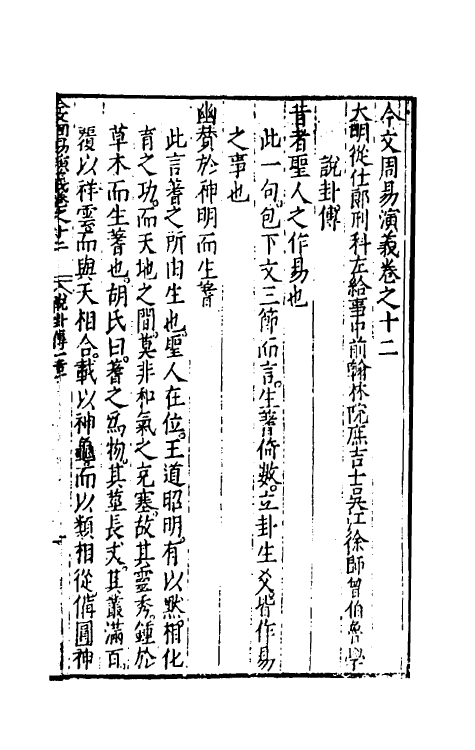 今文周易演義卷之十二
大明從仕郎刑科左給事中前翰林院庶吉士吳江徐師曾伯魯學
說卦傳
昔者聖人之作易也
此一句包下文三節而言。生蓍倚數。立卦生爻。皆作易
之事也
幽贊於神明而生蓍
此言蓍之所由生也。聖人在位。王道昭明。有以默相化
育之功。而天地之間。莫非和氣之充塞。故其靈秀。鍾於
草木而生蓍也。胡氏曰。蓍之爲物。其莖長丈。其叢滿百。
覆以祥雲。而與天相合。載以神龜。而以類相從。偕圓神
今文周易演義卷之十二 八說卦傳一章